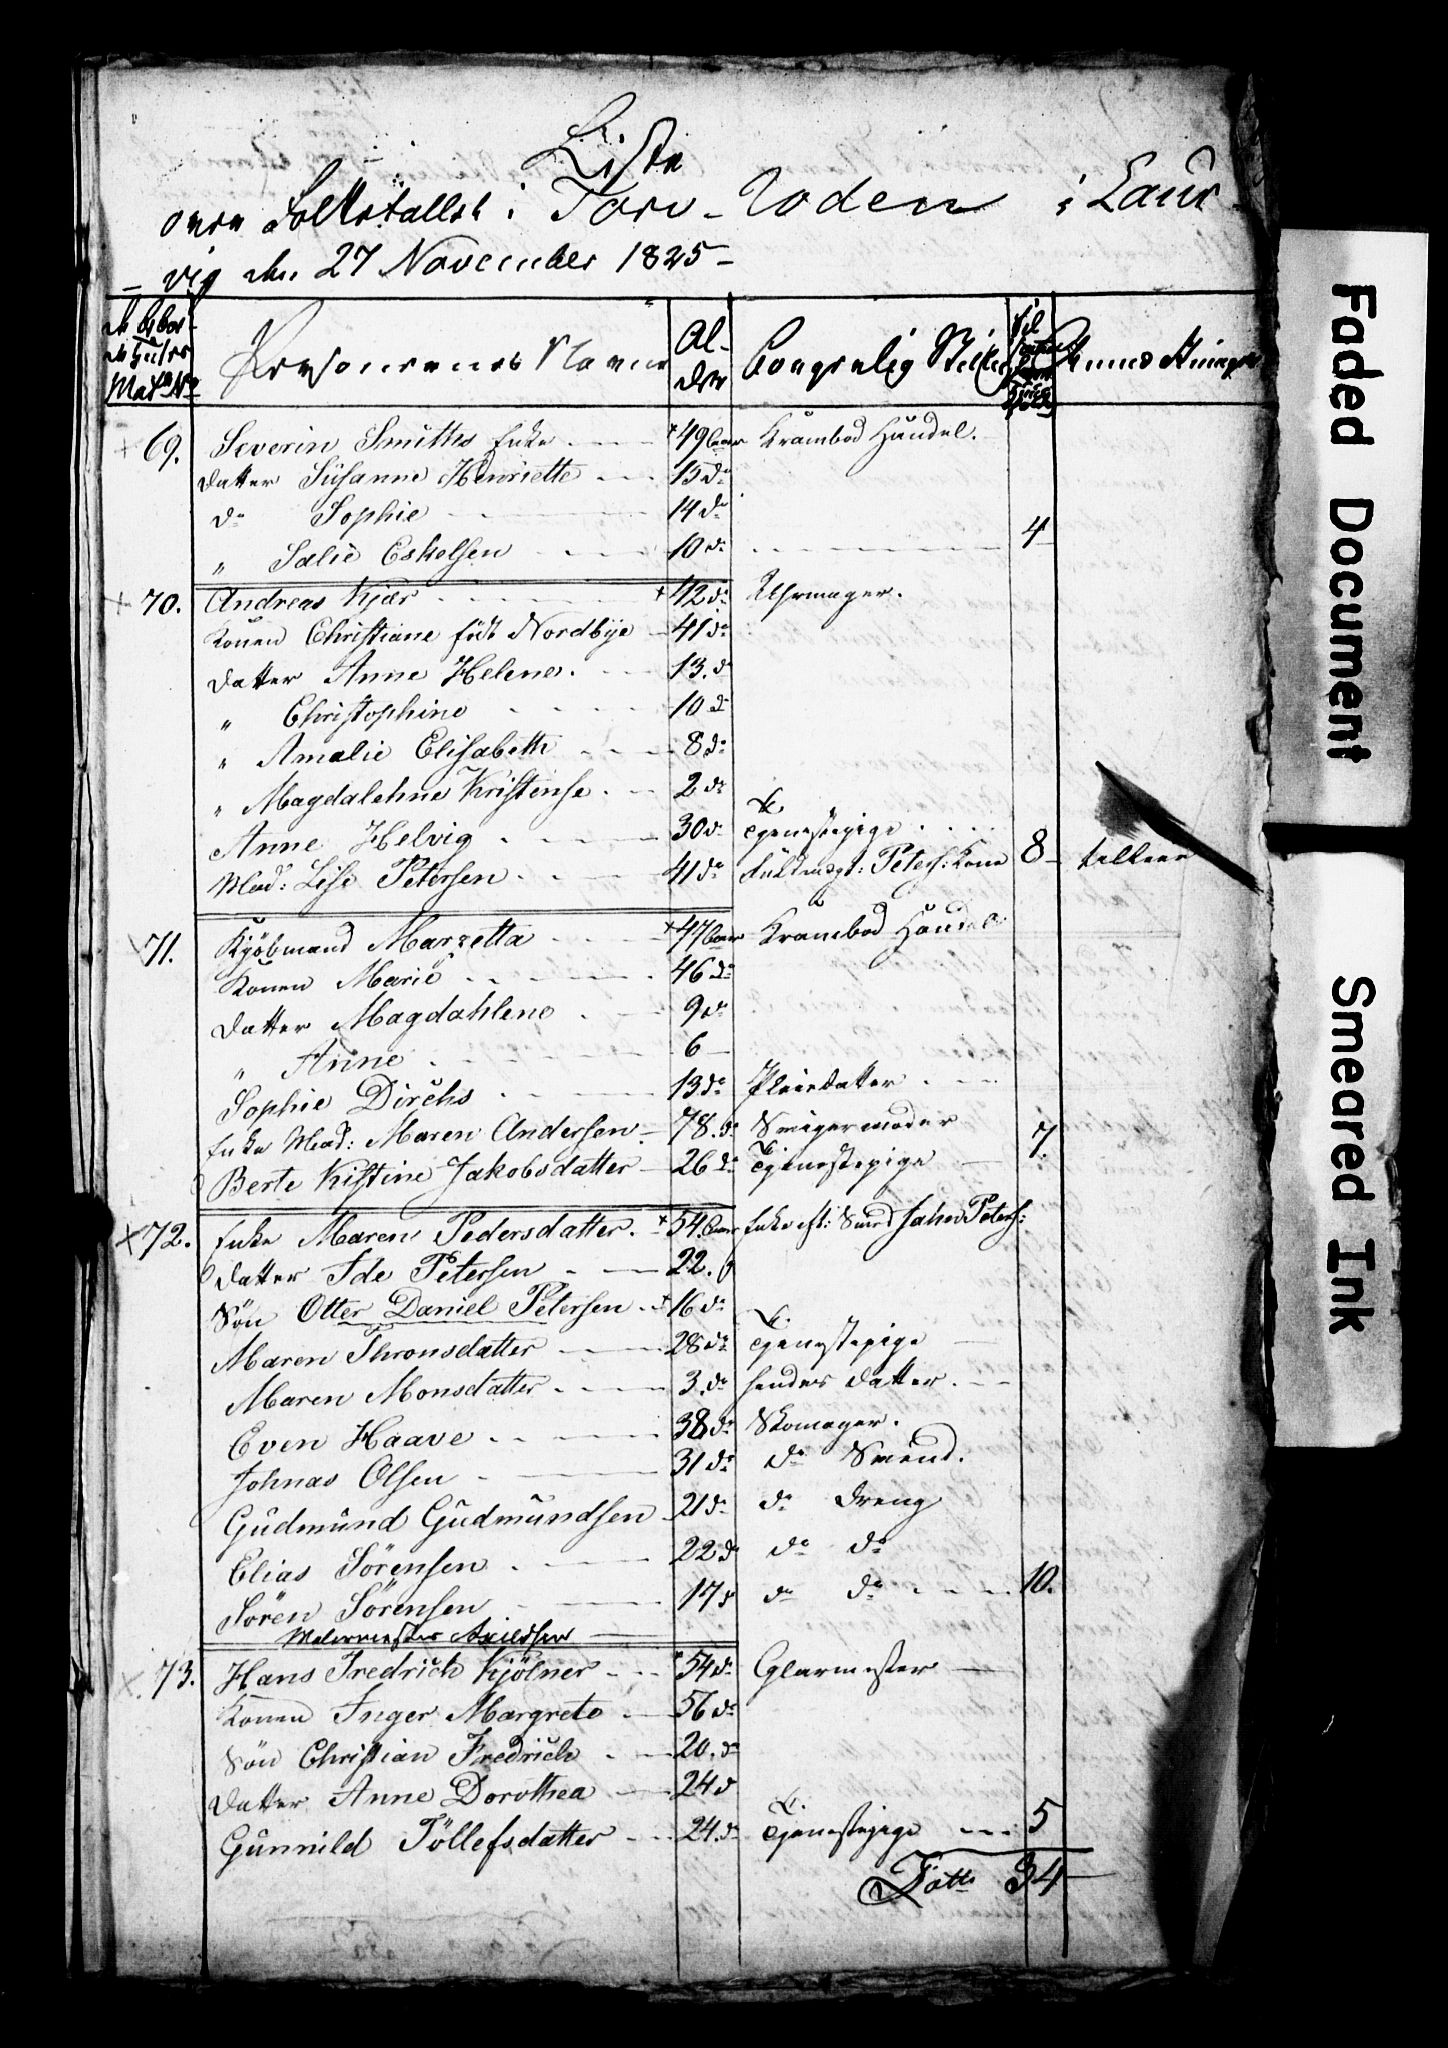 Liste
over Folketallet i Torv-Roden i Laur-
vig den 27 November 1825
Mat. No Personernes Navne Al-der Borgerlig Stilling Anmærkninger
69. Severin Smiths Enke 49 Aar Krambod Handel.
datter Susanne Henriette 15 do
do Sophie 14 do
" Salie Eskelsen 10 do 4
70. Andreas Kjær 42 do Uhrmager.
Konen Christiane född Nordbye 41 do
datter Anne Helene. 13. do
" Christophine 10 do
" Amalie Elisabeth 8 do
" Magdalehne Kristense 2 do
Anne Helvig 30 do Tjenestepige
Mad: Lise Petersen 41 do Fuldmægt: Peters: Kone 8
71. Kjöbmand Marzetta 47 Aar Krambod Handel
Konen Marie 46 do
datter Magdahlene 9 do
" Anne 6
Sophie Dirchs 13 do Pleiedatter
Enke Mad: Maren Andersen 78. do Svigermoder
Berte Kistine Jakobsdatter 26 do Tjenestepige 7.
72. Enke Maren Pedersdatter. 54. Aar Enke eft: Peters:
datter Ide Petersen 22.
Sön Otter Daniel Petersen 16 do
Maren Thronsdatter 28 do Tjenestepige
Maren Monsdatter 3. do hendes datter.
Even Haave 38 do Skomager.
Johnas Olsen 31 do do Svend.
Gudmund Gudmundsen 21 do do Dreng
Elias Sörensen 22 do do do
Sören Sörensen 17 do do do 10.
73. Hans Fredrich Kjölner 54 do Glarmester
Konen Inger Margrete 56 do
Sön Christian Fredrich 20. do
datter Anne Dorothea 24 do
Gunnild Töllefsdatter 24. do Tjenestepige 5
34
Faded Document
Smeared Ink